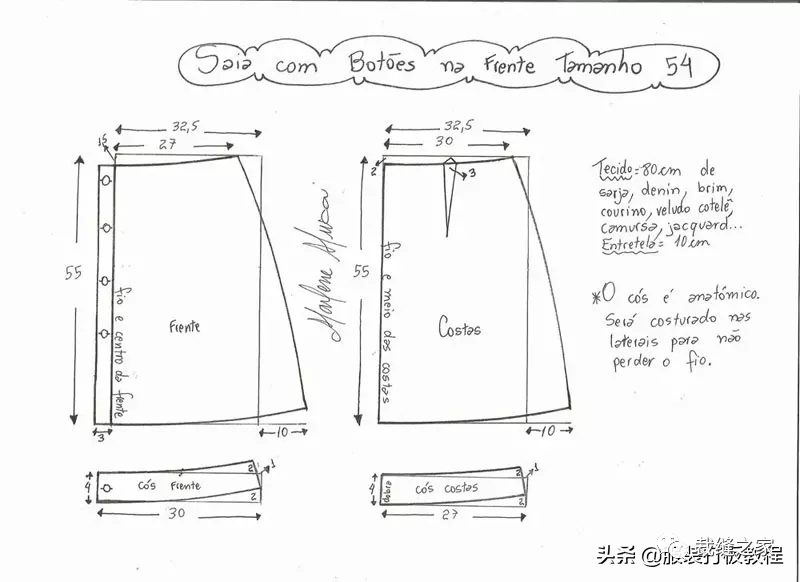 Saia com Botões na Frente Tamanho 54
32,5
27
1,5
55
fio e centro da frente
Frente
3
10
Marlene Mukai
32,5
30
2
3
55
fio e meio das costas
Costas
10
Tecido = 80 cm de
sarja, denin, brim,
courino, veludo cotelê,
camursa, jacquard...
Entretela = 10 cm
*O cós é anatómico.
Será costurado nas
laterais para não
perder o fio.
4
Cós Frente
2
1
2
30
4
dobra
cós costas
2
1
2
27
裁缝之家
头条 @服装打板教程